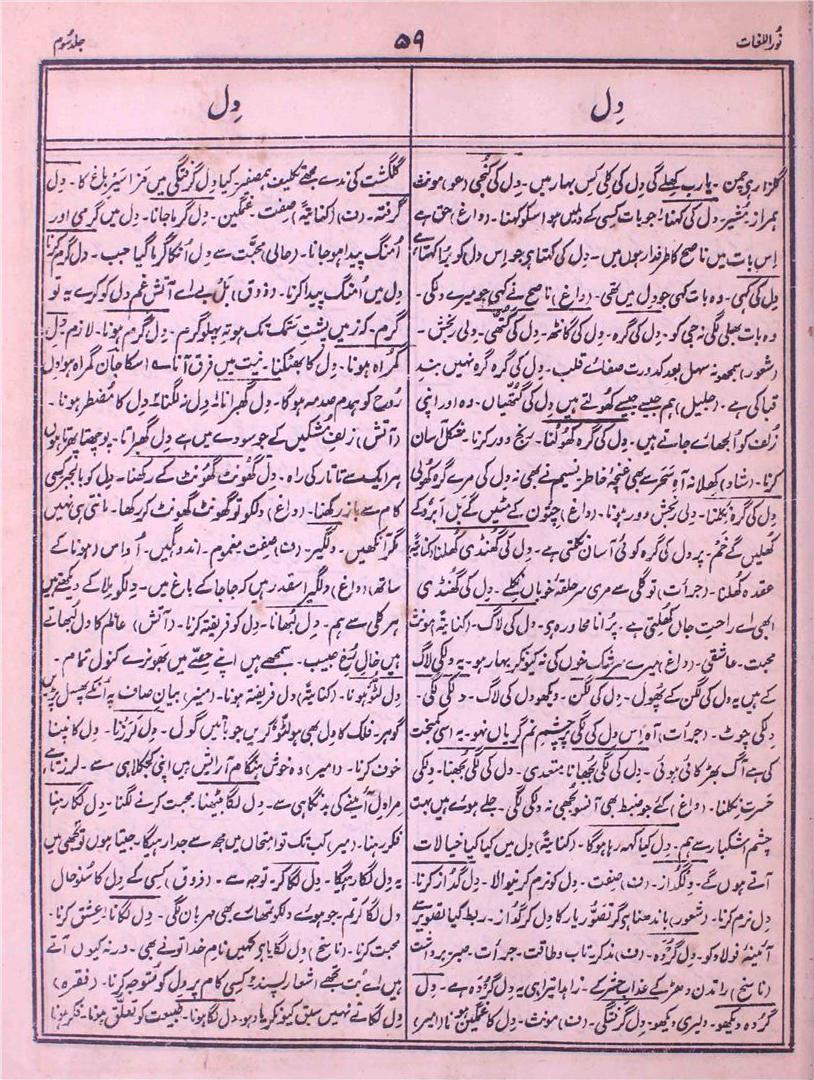 نُور اللغات
۵۹
جلد سُوم
دِل
دِل
گلزارِ ہی چمن۔ یارب کھلے گی دِل کی کلی کس بہار میں۔ دِل کی کُنجی (عو) مونث
ہمراز۔ مُشیر۔ دِل کی کہنا؛ جو بات کسی کے دلمیں ہو اسکو کہنا۔ (داغ) حق ہے
اِس بات میں ناصح کا طرفدار ہوں میں۔ دِل کی کہتا ہی جو اِس دل کو بُرا کہتا ہے
دِل کی کہی۔ وہ بات کہی جو دِل میں تھی۔ (داغ) ناصح نے کہی جو میرے دلکی۔
وہ بات بھلی لگی نہ جی کو۔ دِل کی گرہ۔ دِل کی گانٹھ۔ دِل کی گُتھی۔ دِلی رنجش۔
(شعور) سمجھو نہ سہل بعد کدورت صفائے قلب۔ دِل کی گرہ گرہ نہیں بندِ
قبا کی ہے۔ (جلیل) ہم جیسے جیسے کھولتے ہیں دِل کی گتھیاں۔ وہ اور اپنی
زلف کو اُلجھائے جاتے ہیں۔ دِل کی گرہ کھولنا۔ رنج دور کرنا۔ مشکل آسان
کرنا۔ (شاد) کھلا نہ آہ سَحر سے بھی غنچۂ خاطر۔ نسیم نے بھی نہ دل کی مرے گرہ کھولی
دِل کی گرہ نِکلنا۔ دِلی رنجش دور ہونا۔ (داغ) چتون کے مٹیں گے بَل ابرو کے
کھلیں گے خم۔ پر دل کی گرہ کوئی آسان نکلتی ہے۔ دِل کی گھنڈی کھلنا (کنایۃً)
عقدہ کھلنا۔ (جرأت) تو گلی سے مری سرِ حلقۂ خوباں نکلے۔ دِل کی گھُنڈی
ابھی اے راحتِ جاں کھلتی ہے۔ پُرانا محاورہ ہی۔ دِل کی لاگ۔ (کنایۃً) مونث
محبت۔ عاشقی۔ (داغ) میرے سرشک خوں کی نہ کیونکر بہار ہو۔ یہ دلکی لاگ
کے ہیں یہ دل کی لگن کے پھول۔ دِل کی لگن۔ دیکھو دل کی لاگ۔ دِلکی لگی۔
دِلکی چوٹ۔ (جرأت) آہ اِس دل کی لگی پر چشمِ نم گریاں نہو۔ یہ اسی کمبخت
کی ہے آگ بھڑکائی ہوئی۔ دِل کی لگی بُجھانا متعدی۔ دل کی لگی بُجھنا۔ دِلکی
حسرت نِکلنا۔ (داغ) کے جو ضبط بھی آنسو بجھی نہ دلکی لگی۔ جلے ہوئے ہیں بہت
چشمِ اشکبار سے ہم۔ دِل کیا کہہ رہا ہوگا۔ (کنایۃً) دل میں کیا کیا خیالات
آتے ہوں گے۔ دِلگُداز۔ (ف) صفت۔ دل کو نرم کرنیوالا۔ دِل گُداز کرنا۔
دِل نرم کرنا۔ (شعور) باندھنا ہی گر تصوّرِ یار کا دل کر گداز۔ ربط کیا تصویر سے
آئینۂ فولاد کو۔ دل گُردہ۔ (ف) مذکر تاب و طاقت۔ جرأت۔ صبر۔ برداشت
(ناسخ) رات دن دھڑکے عذابِ حشر کے۔ زاہدا تیرا ہی یہ دل گُردہ ہے۔ دِل
گُردہ دیکھو۔ دلیری دیکھو۔ دِل گِرفتگی۔ (ف) مونث۔ دِل کا غمگین ہونا (امیر)
گلگشت کی نہ دے مجھے تکلیف ہمصفیر۔ کیا دل گرفتگی میں مزا سیرِ باغ کا۔ دِل
گرفتہ۔ (ف) (کنایۃً) صفت۔ غمگین۔ دِل گرما جانا۔ دِل میں گرمی اور
اُمنگ پیدا ہو جانا۔ (حالی) محبّت سے دل اُنکا گرما گیا جب۔ دل گرم کرنا
دِل میں اُمنگ پیدا کرنا۔ (ذوق) بَل بے اے آتشِ غم دِل کو کرے یہ تو
گرم۔ کہ زمیں پشتِ سَمک تک ہو تہ پہلو گرم۔ دِل گرم ہونا۔ لازم۔ دِل
گمراہ ہونا۔ دِل کا بھٹکنا۔ نیت میں فرق آنا۔ اسکا جان گمراہ ہوا دل
رُوح کو ہمدم صدمہ ہوگا۔ دِل گھبرانا؛ دِل نہ لگنا؛ دِل کا مُضطر ہونا۔
(آتش) زلفِ مُشکیں کے جو سودے میں ہے دِل گھبراتا۔ پوچھتا پھرتا ہوں
ہر ایک سے تاتار کی راہ۔ دِل گھونٹ گھُونٹ کے رکھنا۔ دِل کو بالجبر کسی
کام سے باز رکھنا۔ (داغ) دلکو تو گھونٹ گھونٹ کر رکھا۔ مانتی ہی نہیں
مگر آنکھیں۔ دِلگیر۔ (ف) صفت مغموم۔ اندوہگیں۔ اُداس (ہونا کے
ساتھ) (داغ) دلگیر اسقدر ہیں کہ جا جا کے باغ میں۔ دِلکو بلا کے دیکھتے ہیں
ہر کلی سے ہم۔ دِل لُبھانا۔ دِل کو فریفتہ کرنا۔ (آتش) عالم کا دل لُبھاتے
ہیں خالِ رُخِ حبیب۔ سمجھے ہیں اپنے حِصّے میں بھونرے کنول تمام۔
دِل لٹّو ہونا۔ (کنایۃً) دل فریفتہ ہونا۔ (منیر) بیانِ صاف پہ اُنکے پھسل پڑیں
گوہر۔ فلک کا دل بھی ہو لٹّو کریں جو باتیں گول۔ دِل لَرزنا۔ دِل کانپنا
خون کرنا۔ (امیر) وہ خوش ہنگامِ آرایش ہیں اپنی کجکلاہی سے۔ لرزتا ہے
مرا دل آئینے کی بدنگاہی سے۔ دِل لگا بیٹھنا۔ محبت کرنے لگنا۔ دِل لگا رہنا
فکر رہنا۔ (میر) کب تک تو امتحاں میں مجھ سے جدا رہیگا۔ جیتا ہوں تو تجھی میں
یہ دل لگا رہیگا۔ دِل لگا کر۔ توجہ سے۔ (ذوق) کسی کے دِل کا سنو حال
دل لگا کر تم۔ جو ہووے دلکو تمھارے بھی مہربان لگی۔ دِل لگانا؛ عشق کرنا۔
محبت کرنا۔ (ناسخ) دِل لگایا ہو کہیں نام خدا تو نے بھی۔ ورنہ کیوں آتے
ہیں اے بُت تجھے اشعار پسند؛ کسی کام پر دِل کو متوجہ کرنا۔ (فقرہ)
دِل لگاتے نہیں سبق کیونکر یاد ہو۔ دل لگا ہونا۔ طبیعت کو تعلّق ہونا۔ فکر ہونا